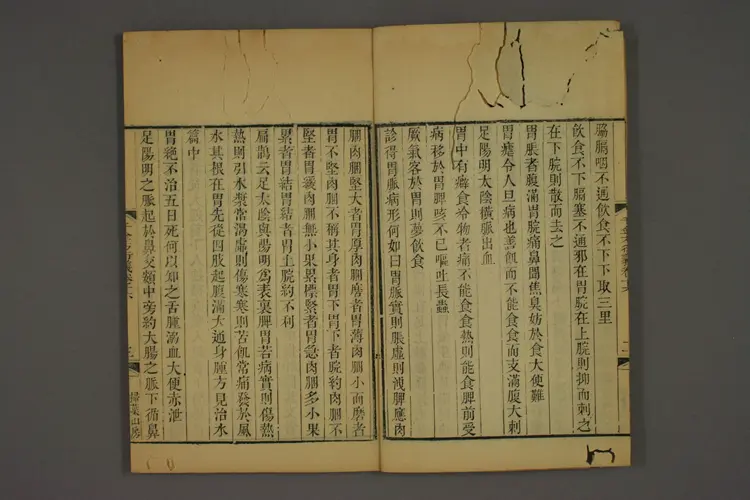 膈膶咽不通飲食不下下取三里
飲食不下膈塞不通邪在胃脘在上脘則抑而刺之
在下脘則散而去之
胃脹者腹滿胃脘痛鼻聞焦臭妨於食大便難
胃瘧令人旦病也善飢而不能食食而支滿腹大刺
足陽明太陰橫脈出血
胃中有癖食冷物者痛不能食食熱則能食脾前受
病移於胃脾咳不已嘔吐長蟲
厥氣客於胃則夢飲食
診得胃脈病形何如曰胃脈實則脹虛則洩脾應肉
䐃肉䐃堅大者胃厚肉䐃麽者胃薄肉䐃小而麽者
胃不堅肉䐃不稱其身者胃下胃下者脘約肉䐃不
堅者胃緩肉䐃無小果累標緊者胃急肉䐃多小果
累者胃結胃結者胃上脘約不利
扁鵲云足太陰與陽明為表裏脾胃若病實則傷熱
熱則引水漿常渴虛則傷寒寒則苦飢常痛發於風
水其根在胃先從四肢起腹滿大通身腫方見治水
篇中
胃絕不治五日死何以知之舌腫溺血大便赤泄
足陽明之脈起於鼻交頞中旁約大腸之脈下循鼻
掃葉山房